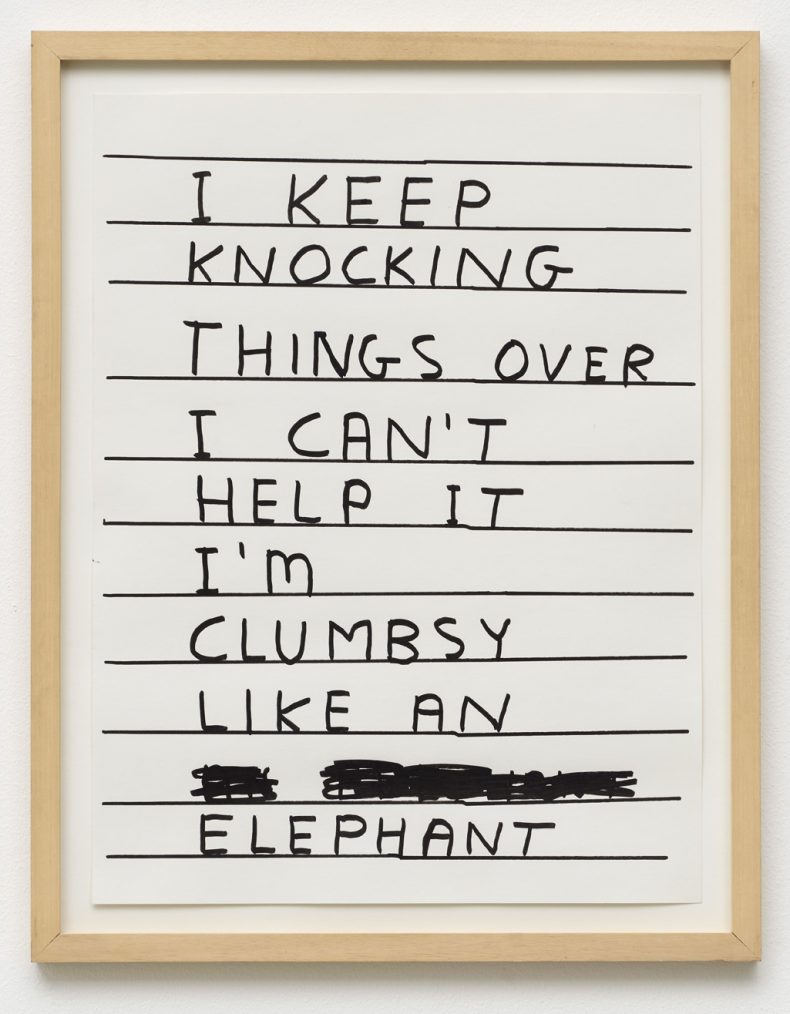 I KEEP
KNOCKING
THINGS OVER
I CAN'T
HELP IT
I'M
CLUMBSY
LIKE AN
ELEPHANT